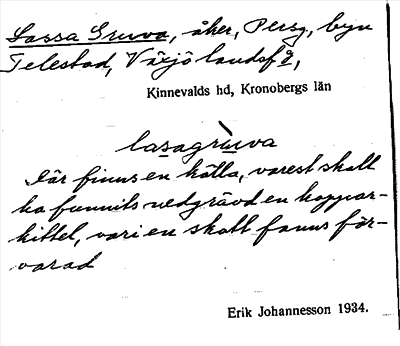 Lassa Gruva, åker, Persg, byn
Telestad, Växjö landsf
Kinnevalds hd, Kronobergs län
lasagru̇va
Där finns en källa, varest skall
ha funnits nedgrävd en koppar-
kittel, vari en skatt fanns för-
varad
Erik Johannesson 1934.